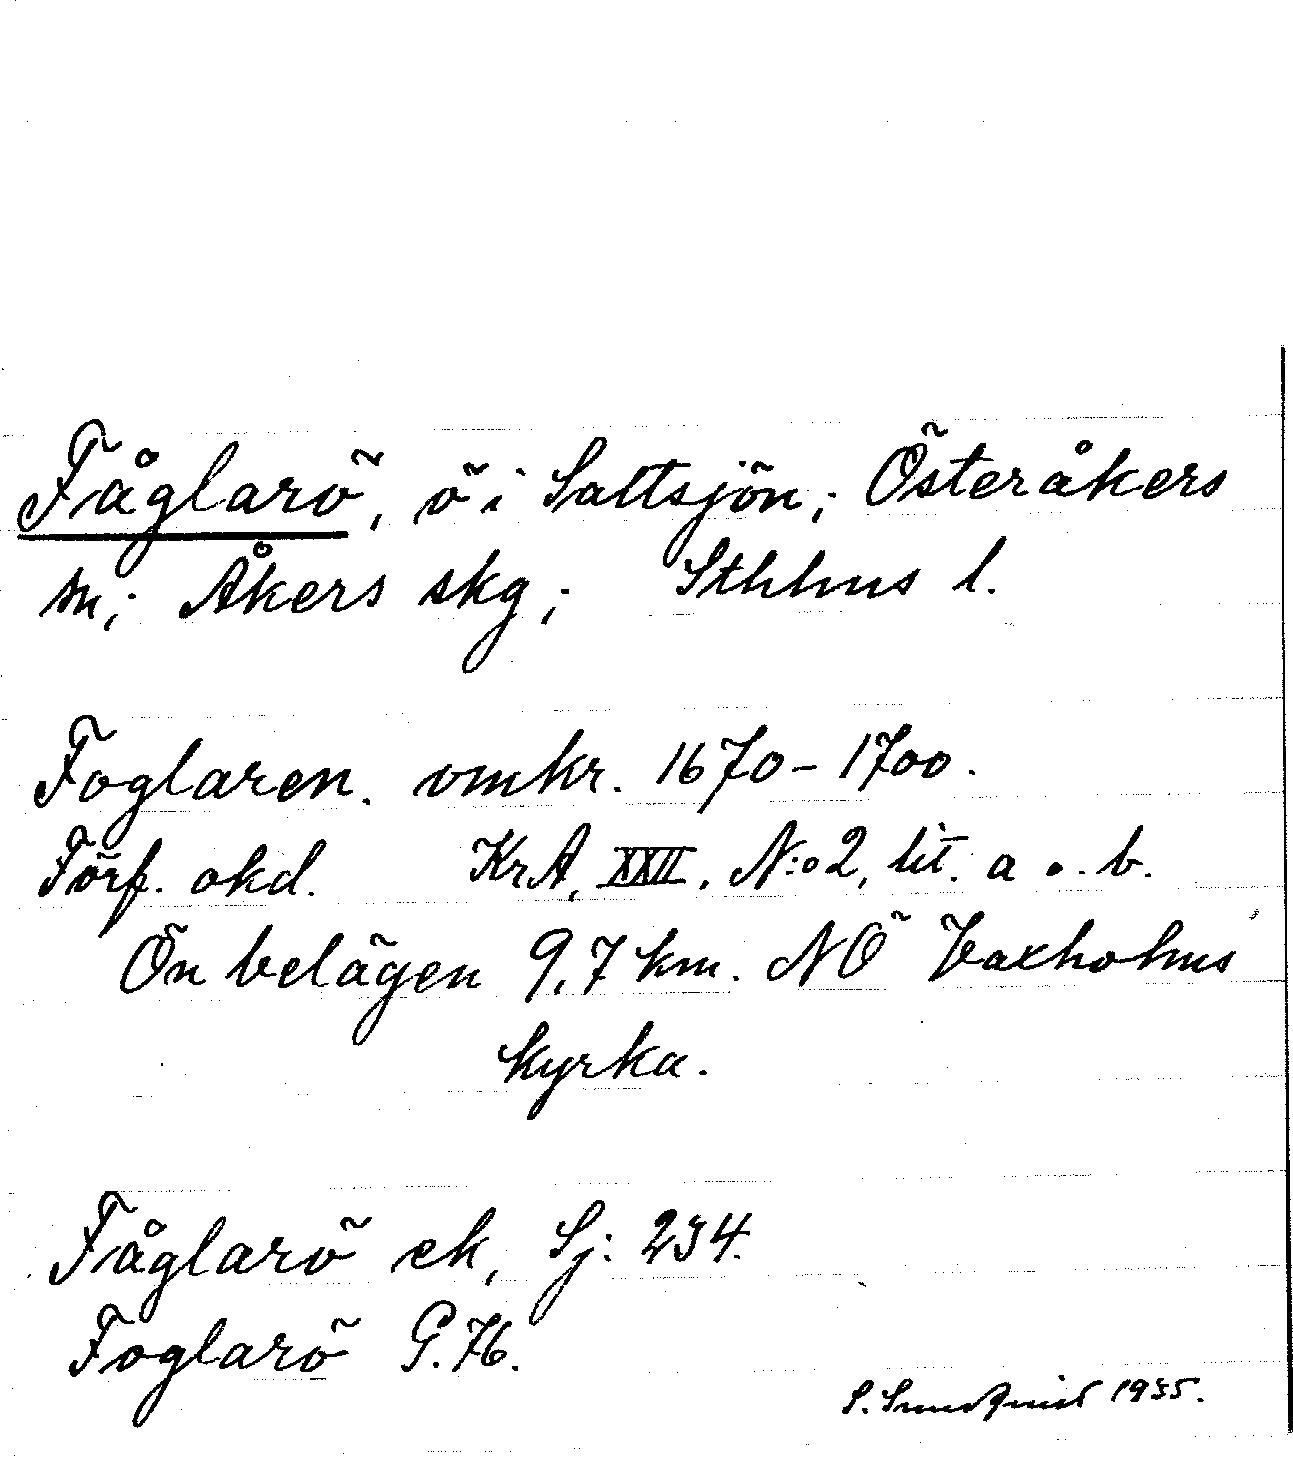 Fåglarö, ö i Saltsjön; Österåkers
sn; Åkers skg; Sthlms l.
Foglaren. omkr. 1670-1700.
Förf. okd. KrA, XXII, N:o 2, lit. a o. b.
Ön belägen 9,7 km. NÖ Vaxholms
kyrka.
Fåglarö ek, Sj: 234.
Foglarö G. 76.
S. Sundquist 1935.